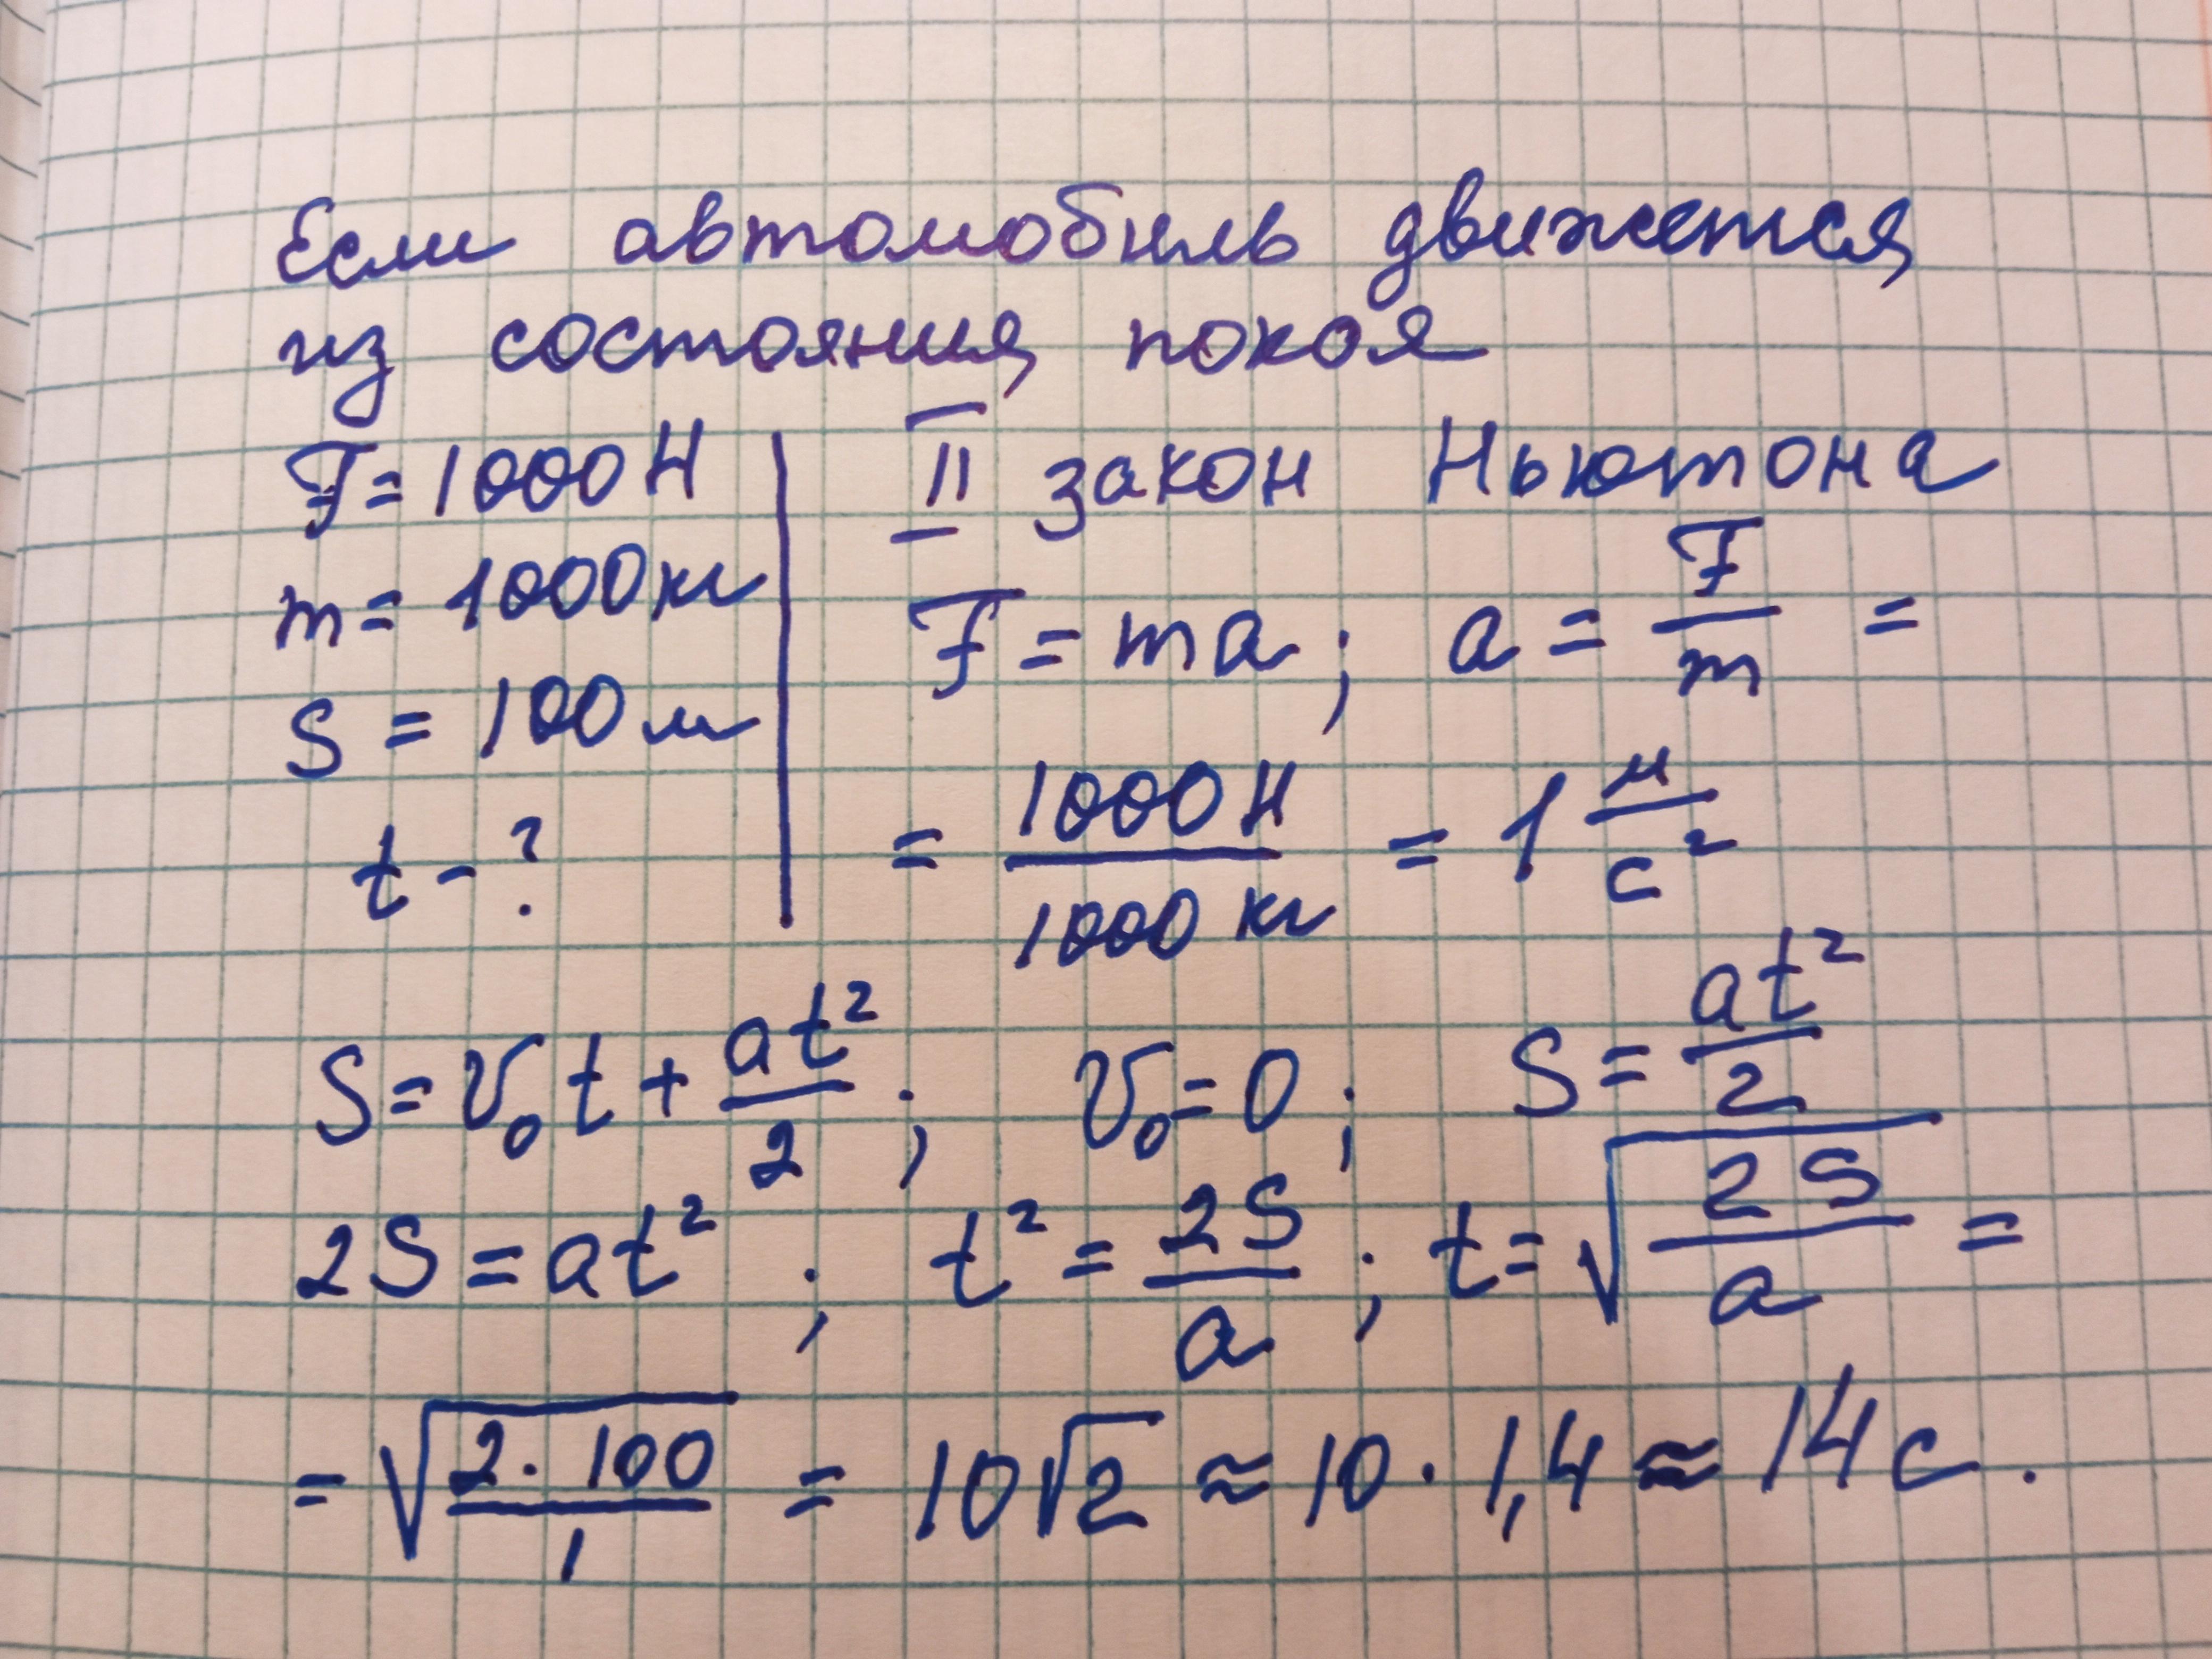 Если автомобиль движется
из состояния покоя
F = 1000 Н
m = 1000 кг
S = 100 м
t - ?
II закон Ньютона
F = ma ; a = F/m =
= 1000 Н / 1000 кг = 1 м/с²
S = v₀t + at²/2 ; v₀ = 0 ; S = at²/2
2S = at² ; t² = 2S/a ; t = √(2S/a) =
= √(2 · 100 / 1) = 10√2 ≈ 10 · 1,4 ≈ 14 с .